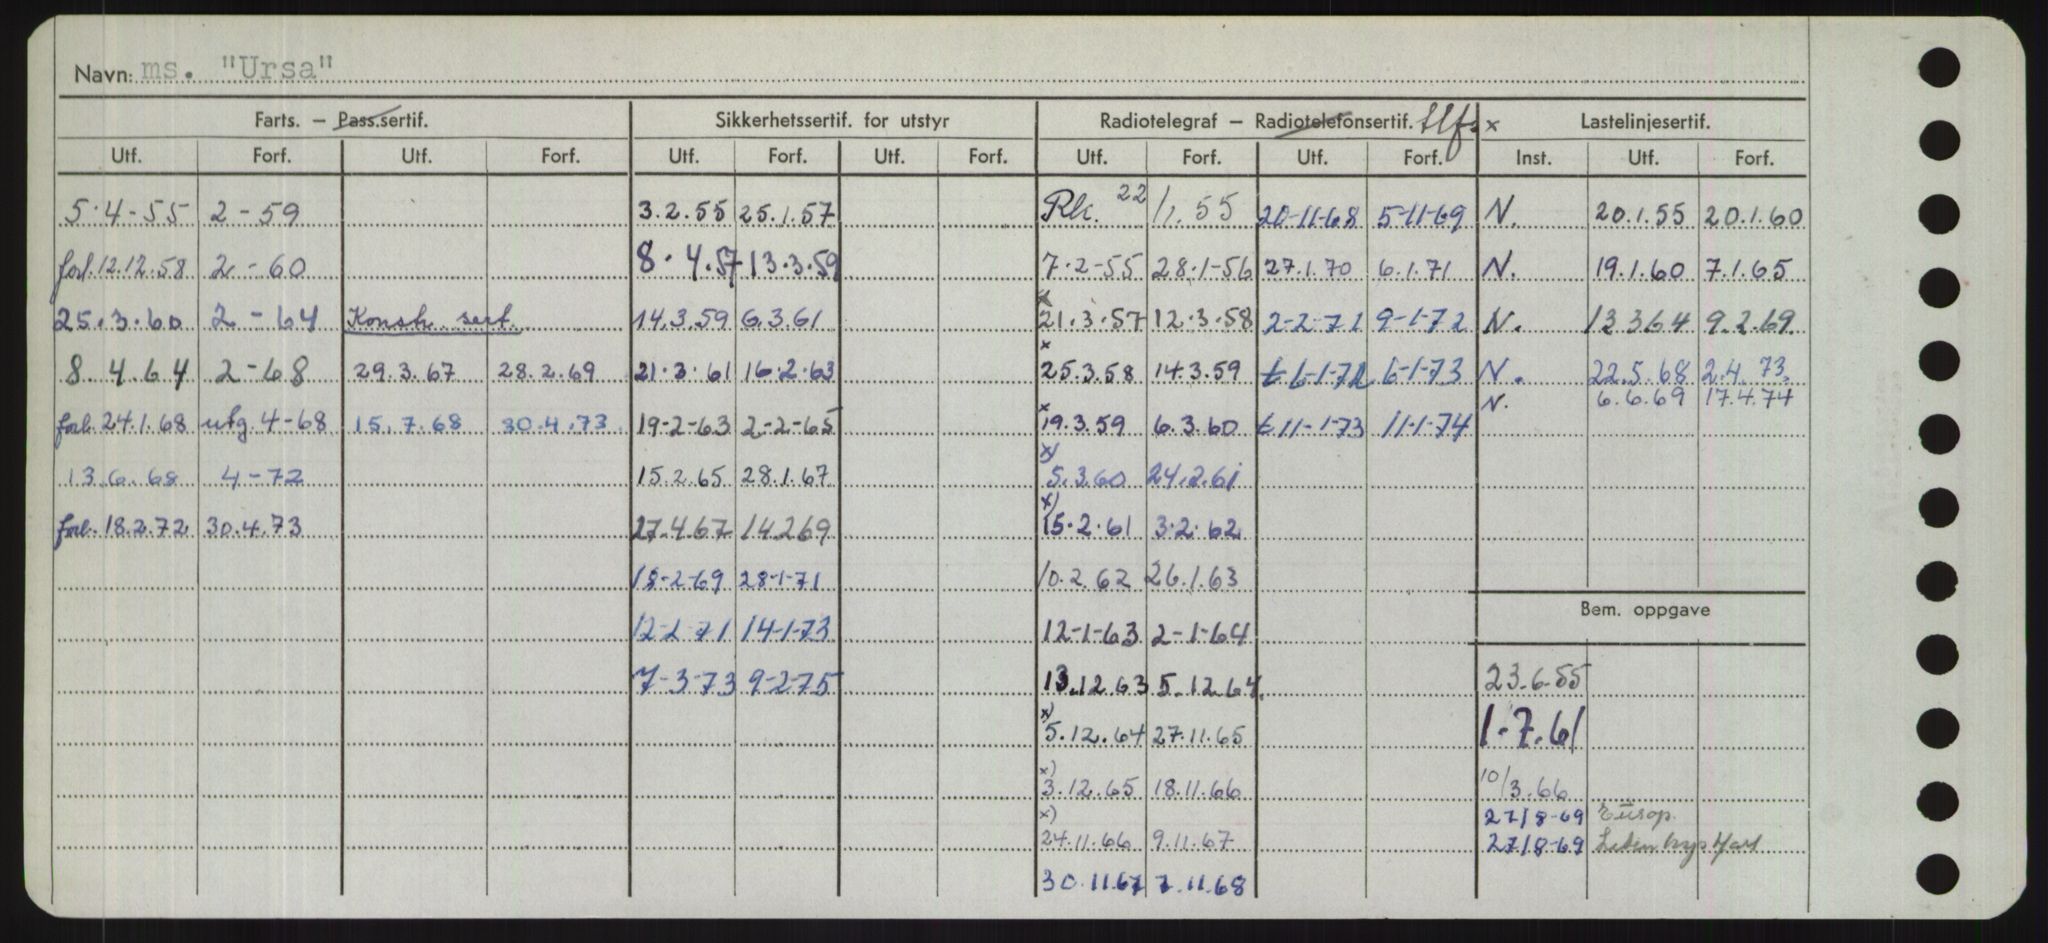 Navn: ms. "Ursa"
Farts. — Pass.sertif. Sikkerhetssertif. for utstyr Radiotelegraf — Radiotelefonsertif. tlf. x Lastelinjesertif.
Utf. Forf. Utf. Forf. Utf. Forf. Utf. Forf. Utf. Forf. Utf. Forf. Inst. Utf. Forf.
5.4-55 2-59 3.2.55 25.1.57 Rk. 22/1.55 20-11-68 5-11-69 N. 20.1.55 20.1.60
forl. 12.12.58 2-60 8.4.57 13.3.59 7.2-55 28.1-56 27.1.70 6.1.71 N. 19.1.60 7.1.65
x
25.3.60 2-64 Konstr. sert. 14.3.59 6.3.61 21.3.57 12.3.58 2-2-71 9-1-72 N. 12.3.64 9.2.69
x
8.4.64 2-68 29.3.67 28.2.69 21.3.61 16.2.63 25.3.58 14.3.59 t 6-1-72 6-1-73 N. 22.5.68 2.4.73.
N. 6.6.69 17.4.74
x
forl. 24.1.68 utg. 4-68 15.7.68 30.4.73. 19-2-63 2-2-65 19.3.59 6.3.60 t 11-1-73 11-1-74
x)
13.6.68 4-72 15.2.65 28.1.67 5.3.60 24.2.61
x)
forl. 18.2.72 30.4.73 27.4.67 14.2.69 15.2.61 3.2.62
18-2-69 28-1-71 10.2.62 26.1.63
Bem. oppgave
12-2-71 14-1-73 12-1-63 2-1-64
7-3-73 9-2-75 13.12.63 5.12.64. 23.6.55
x)
5.12.64 27.11.65 1.7.61
x)
3.12.65 18.11.66 10/3.66
x)
27/8-69 Europ.
24.11.66 9.11.67 27/8-69 Liten kystfart
30.11.67 7.11.68